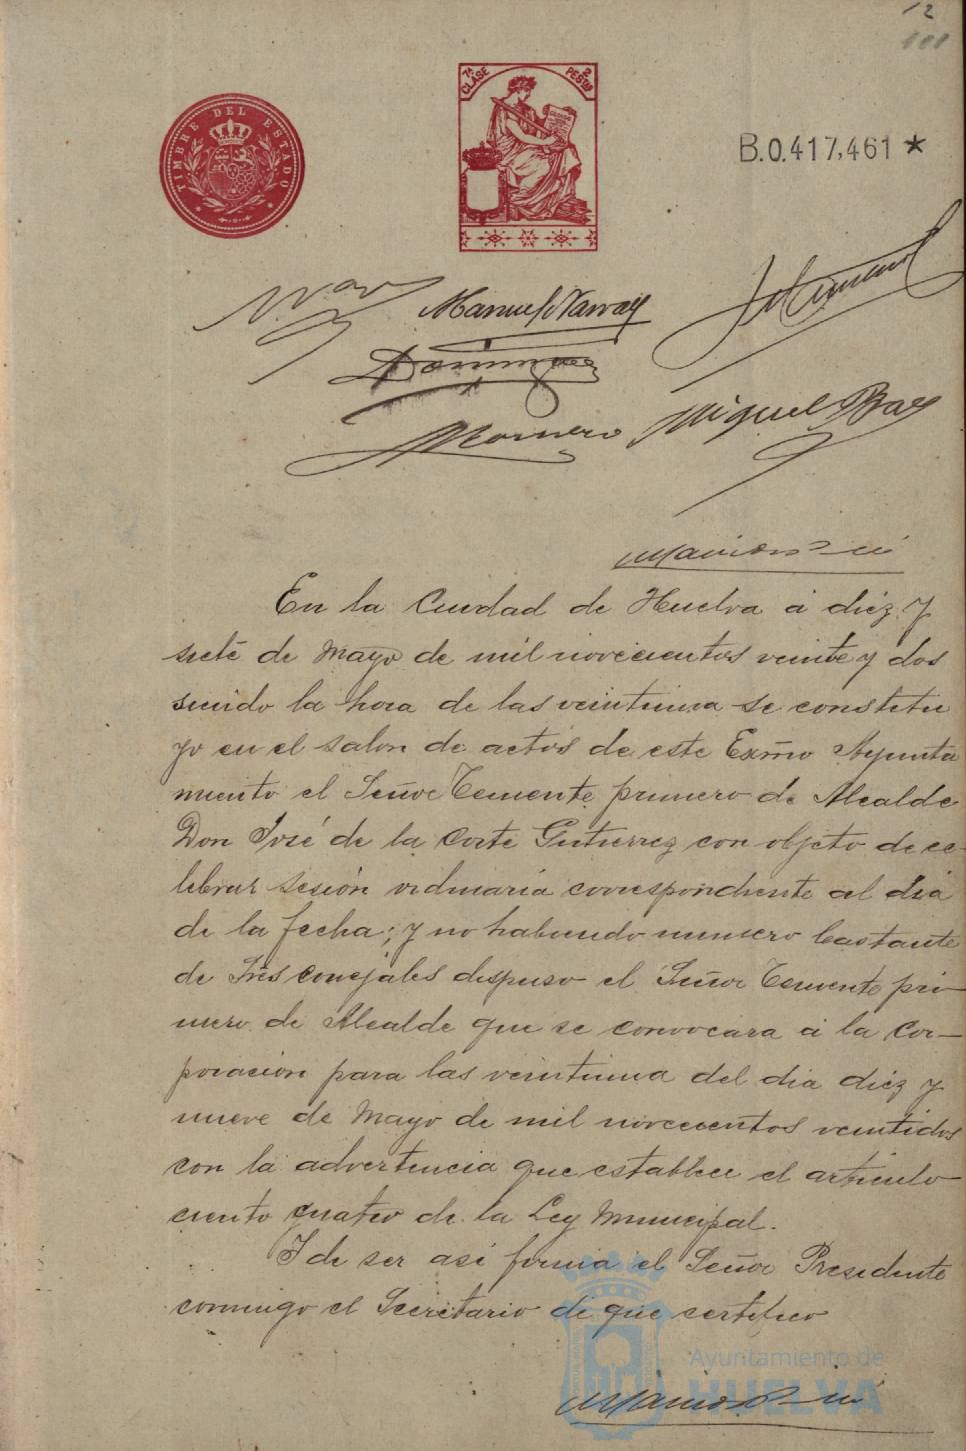 12
101
TIMBRE DEL ESTADO
7ª CLASE
2 PESTAS
B.0.417,461 *
Manuel Narvaez
Dominguez
Romero Miguel Baz
En la Ciudad de Huelva á diéz y
siete de Mayo de mil novecientos veinte y dos
siendo la hora de las veintiuna se constitu
yo en el salon de actos de este Exmo Ayunta
miento el Señor Teniente primero de Alcalde
Don José de la Corte Gutierrez con objeto de ce-
lebrar sesión ordinaria correspondiente al dia
de la fecha; y no habiendo numero bastante
de Sres concejales dispuso el Señor Teniente pri-
mero de Alcalde que se convocara á la Cor-
poración para las veintiuna del dia diéz y
nueve de Mayo de mil novecientos veintidos
con la advertencia que establece el articulo
ciento cuatro de la Ley Municipal.
I de ser asi firma el Señor Presidente
conmigo el Secretario de que certifico
Ayuntamiento de
HUELVA